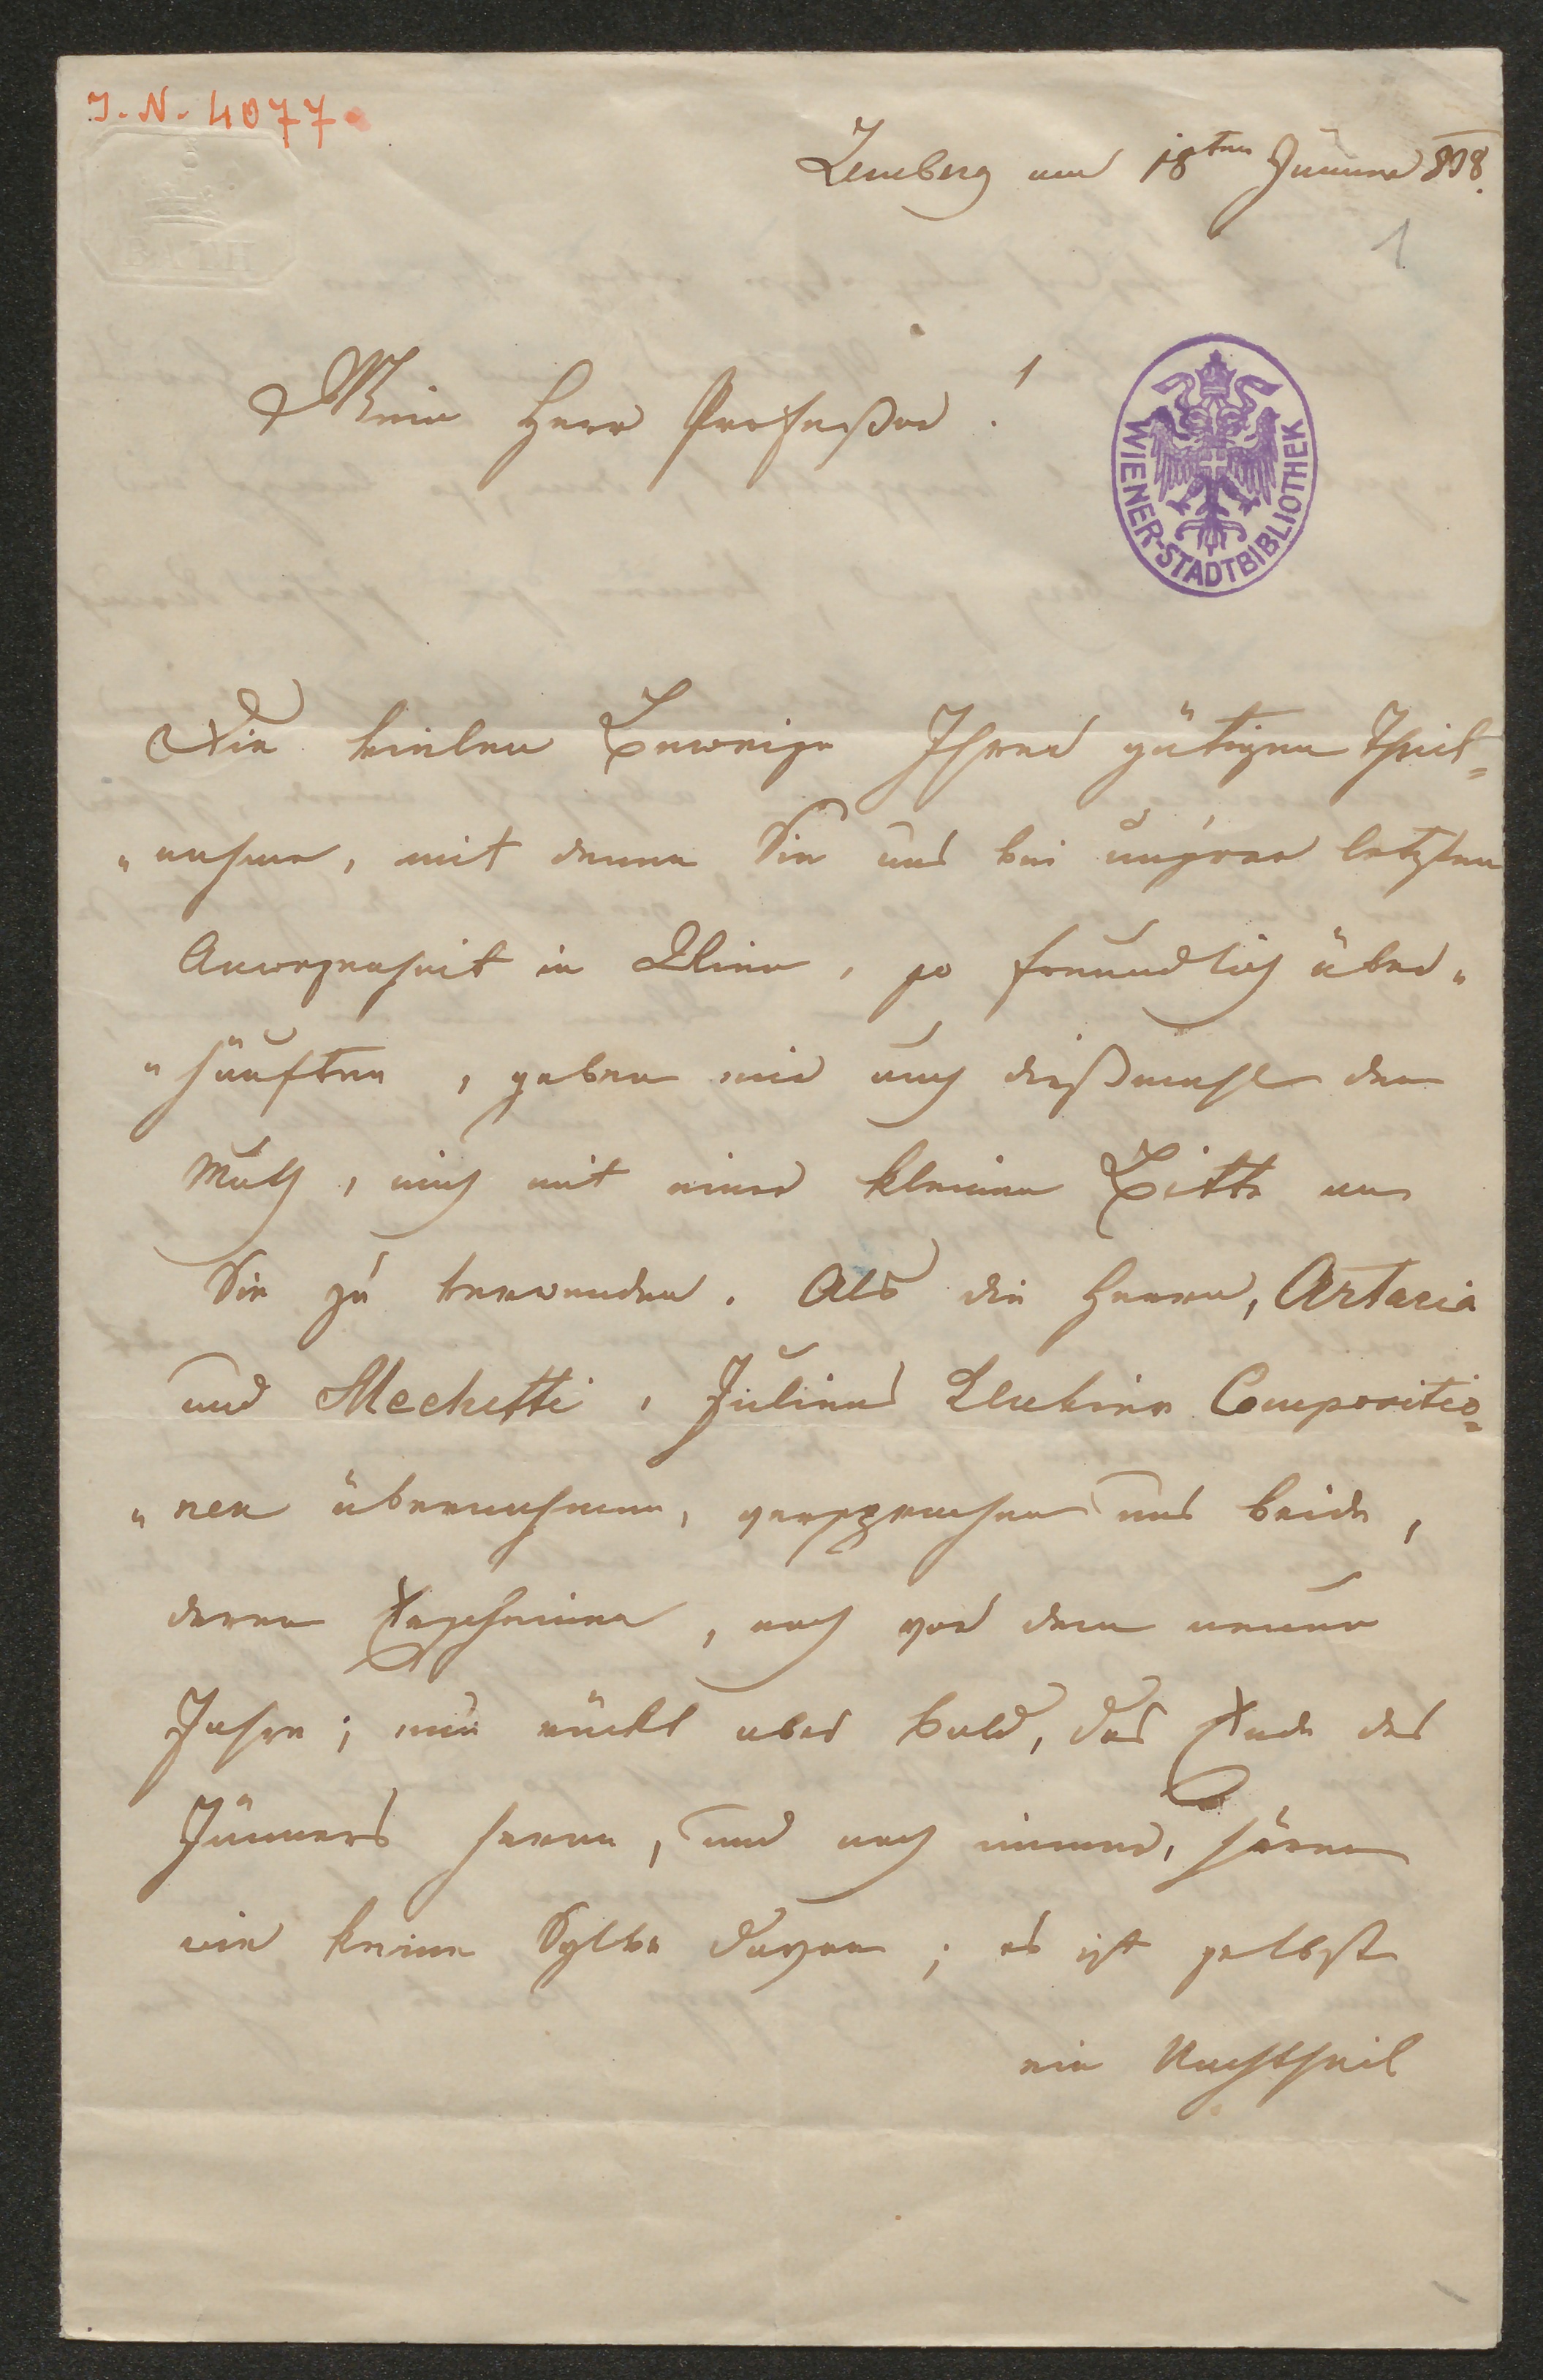 I. N. 4077
Lemberg am 18ten Jänner 838.
1
BATH
Mein Herr Profeßor!
WIENER-STADTBIBLIOTHEK
Die vielen Beweise Ihrer gütigen Theil=
„nahme, mit denen Sie uns bei unsrer letzten
Anwesenheit in Wien, so freundlich über„
„häuften, geben mir auch dießmahl den
Muth, mich mit einer kleinen Bitte an
Sie zu verwenden. Als die Herrn, Artaria
und Mechetti, Julians Compositio=
„nen übernahmen, versprachen uns beide,
deren Erscheinen, noch vor dem neuen
Jahre; nun rückt aber bald, das Ende des
Jänners heran, und noch immer, hören
wir keine Sylbe davon; es ist selbst
ein Nachtheil